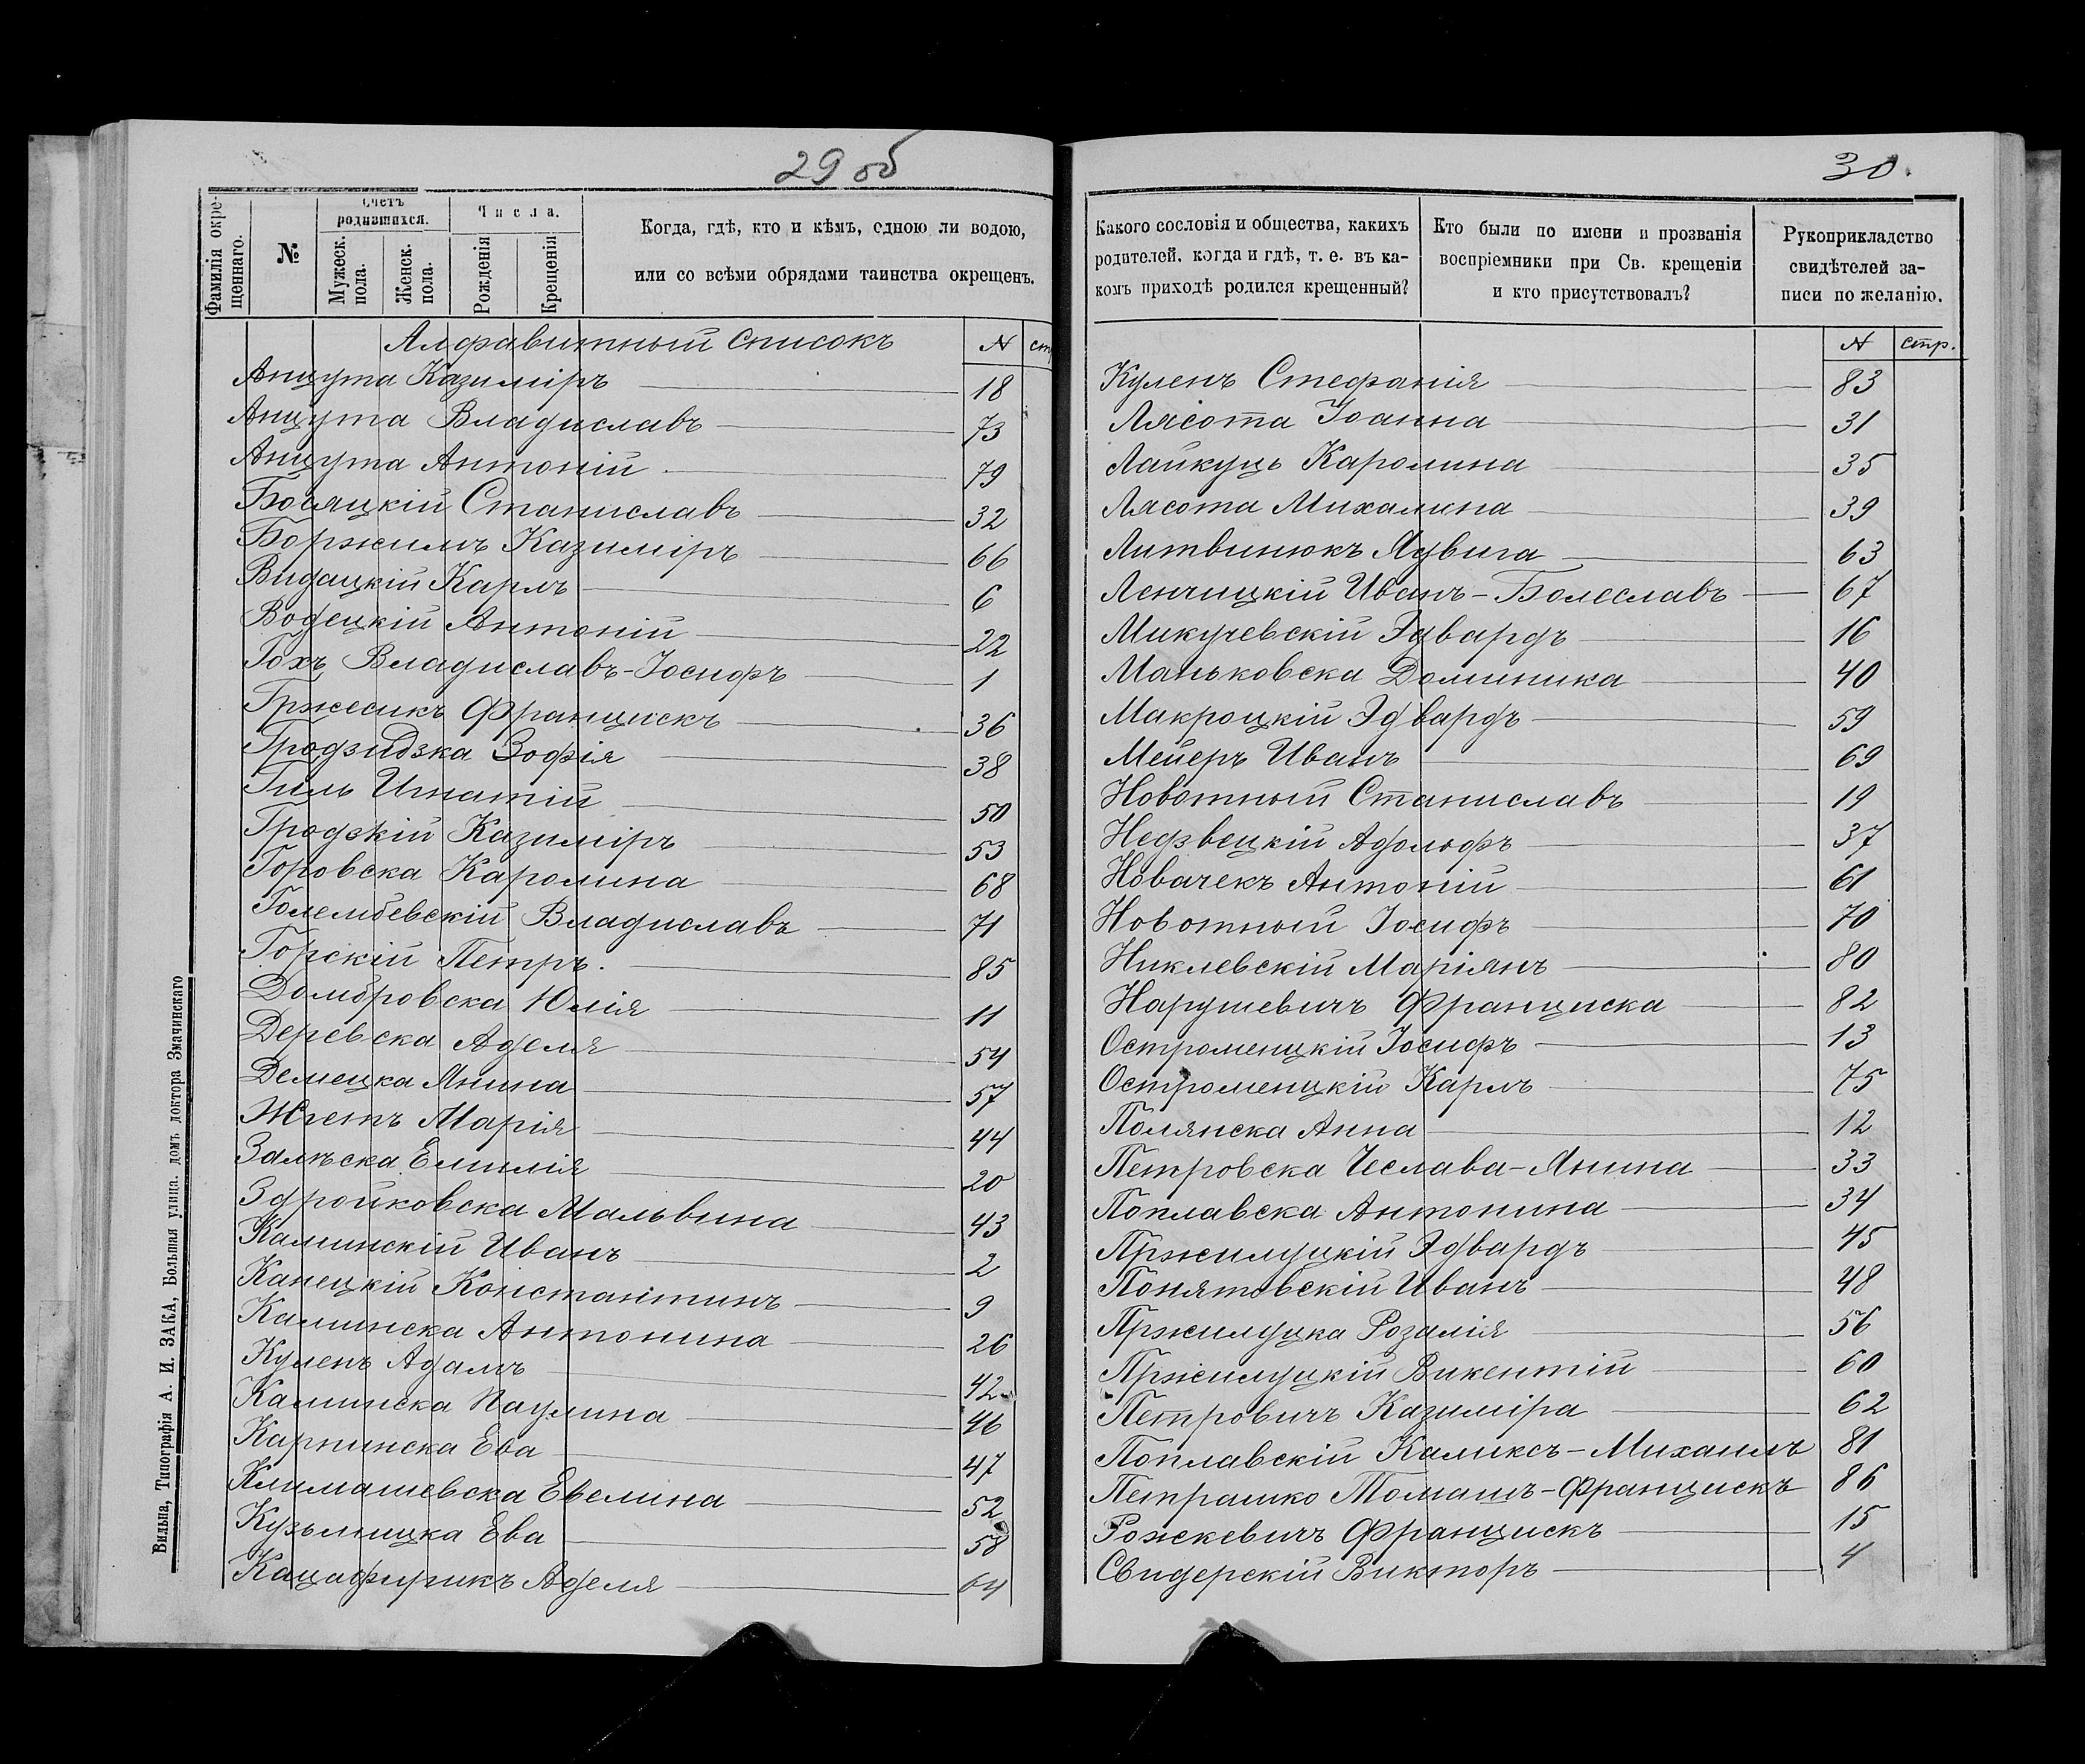 29 об
Фамилія окрещеннаго.
№
Счетъ родившихся.
Мужеск. пола.
Женск. пола.
Числа.
Рожденія
Крещенія
Когда, гдѣ, кто и кѣмъ, одною ли водою,
или со всѣми обрядами таинства окрещенъ.
Алфавитный списокъ N стр
Анцута Казиміръ 18
Анцута Владиславъ 73
Анцута Антоній 79
Босяцкій Станиславъ 32
Боржимъ Казиміръ 66
Видацкій Карлъ 6
Водецкій Антоній 22
Гохъ Владиславъ-Іосифъ 1
Гржесикъ Францискъ 36
Гродзидзка Зофія 38
Гиль Игнатій 50
Гродзкій Казиміръ 53
Горовска Каролина 68
Голембевскій Владиславъ 71
Горскій Петръ. 85
Домбровска Юлія 11
Деревска Аделя 54
Демецка Янина 57
Жгетъ Марія 44
Залѣска Емилія 20
Здройковска Мальвина 43
Калинскій Иванъ 2
Канецкій Константинъ 9
Калинска Антонина 26
Куленъ Адамъ 42
Калинска Паулина 46
Карпинска Ева 47
Климашевска Евелина 52
Кузьмицка Ева 58
Кацафирикъ Аделя 64
Вильна, Типографія А. И. ЗАКА, Большая улица, домъ доктора Змачинскаго
30.
Какого сословія и общества, какихъ
родителей, когда и гдѣ, т. е. въ ка-
комъ приходѣ родился крещенный?
Кто были по имени и прозванія
воспріемники при Св. крещеніи
и кто присутствовалъ?
Рукоприкладство
свидѣтелей за-
писи по желанію.
N стр.
Куленъ Стефанія 83
Лясота Іоанна 31
Лайкуць Каролина 35
Лясота Михалина 39
Литвинюкъ Ядвига 63
Ленчицкій Иванъ-Болеславъ 67
Микучевскій Эдвардъ 16
Маньковска Доминика 40
Макроцкій Эдвардъ 59
Мейеръ Иванъ 69
Новотный Станиславъ 19
Недзвецкій Адольфъ 37
Новачекъ Антоній 61
Новотный Іосифъ 70
Никлевскій Маріянъ 80
Нарушевичъ Франциска 82
Остроменцкій Іосифъ 13
Остроменцкій Карлъ 75
Полянска Анна 12
Петровска Чеслава-Янина 33
Поплавска Антонина 34
Пржилуцкій Эдвардъ 45
Понятовскій Иванъ 48
Пржилуцка Розалія 56
Пржилуцкій Викентій 60
Петровичъ Казиміра 62
Поплавскій Каликсъ-Михаилъ 81
Петрашко Томашъ-Францискъ 86
Рожкевичъ Францискъ 15
Свидерскій Викторъ 4